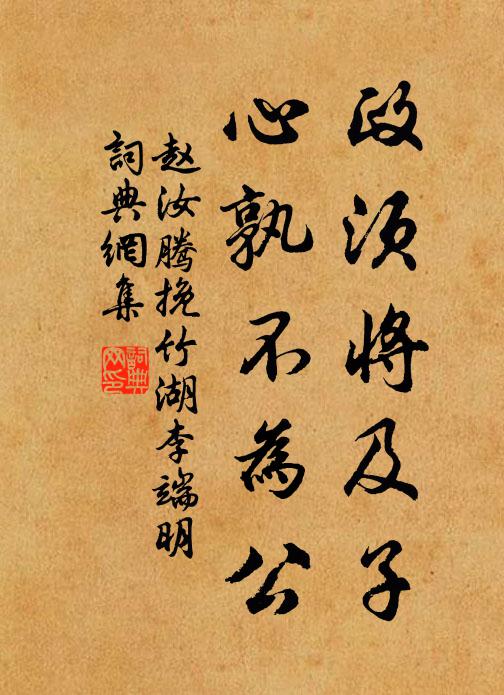 政须将及子
心孰不為公
赵汝腾挽竹湖李端明
詞典網集
詞典
网印